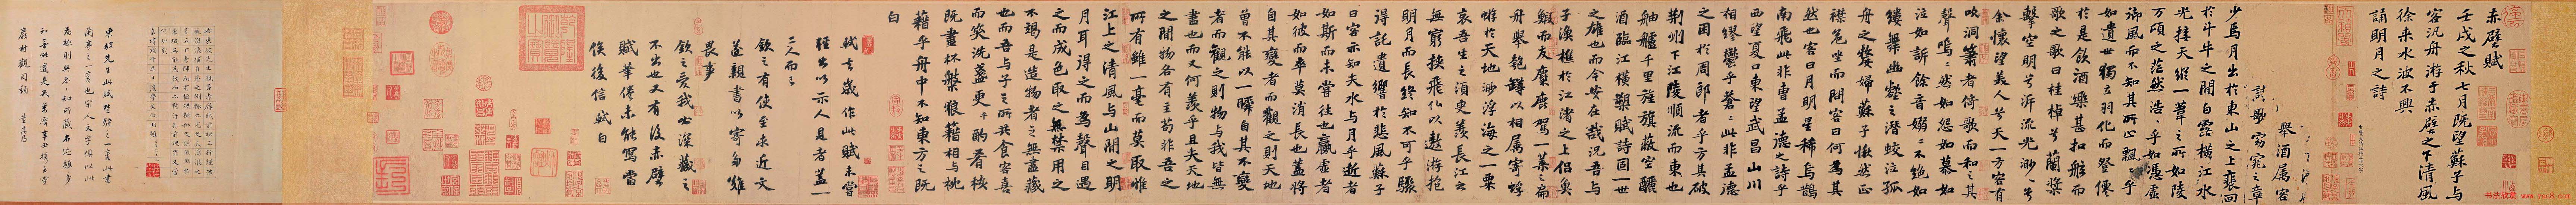 赤壁賦
壬戌之秋七月既望蘇子與
客汎舟游于赤壁之下清風
徐來水波不興
誦明月之詩
舉酒屬客
歌窈窕之章
少焉月出於東山之上裴回
於斗牛之間白露橫江水
光接天縱一葦之所如陵
萬頃之茫然浩浩乎如馮虛
御風而不知其所止飄飄乎
如遺世獨立羽化而登僊
於是飲酒樂甚扣舷而
歌之歌曰桂棹兮蘭槳
擊空明兮泝流光渺渺兮
余懷望美人兮天一方客有
吹洞簫者倚歌而和之其
聲嗚嗚然如怨如慕如
泣如訴餘音嫋嫋不絕如
縷舞幽壑之潛蛟泣孤
舟之嫠婦蘇子愀然正
襟危坐而問客曰何為其
然也客曰月明星稀烏鵲
南飛此非曹孟德之詩乎
西望夏口東望武昌山川
相繆鬱乎蒼蒼此非孟德
之困於周郎者乎方其破
荊州下江陵順流而東也
舳艫千里旌旗蔽空釃
酒臨江橫槊賦詩固一世
之雄也而今安在哉況吾與
子漁樵於江渚之上侶魚
鰕而友麋鹿駕一葉之扁
舟舉匏罇以相屬寄蜉
蝣於天地渺浮海之一粟
哀吾生之須臾羨長江之
無窮挾飛仙以遨游抱
明月而長終知不可乎驟
得託遺響於悲風蘇子
曰客亦知夫水與月乎逝者
如斯而未嘗往也贏虛者
如彼而卒莫消長也蓋將
自其變者而觀之則天地
曾不能以一瞬自其不變
者而觀之則物與我皆無
盡也而又何羨乎且夫天地
之間物各有主苟非吾之
所有雖一毫而莫取惟
江上之清風與山間之明
月耳得之而為聲目遇
之而成色取之無禁用之
不竭是造物者之無盡藏
也而吾與子之所共食客喜
而笑洗盞更酌肴核
既盡杯盤狼籍相與枕
藉乎舟中不知東方之既
白
軾去歲作此賦未嘗
輕出以示人見者蓋一
二人而已
欽之有使至求近文
遂親書以寄多難
畏事
欽之愛我必深藏之
不出也又有後赤壁
賦筆倦未能寫當
俟後信軾白
東坡先生此賦楚騷之一變此書
蘭亭之一變也宋人文字俱以此
為極則
巖村觀因題 董其昌